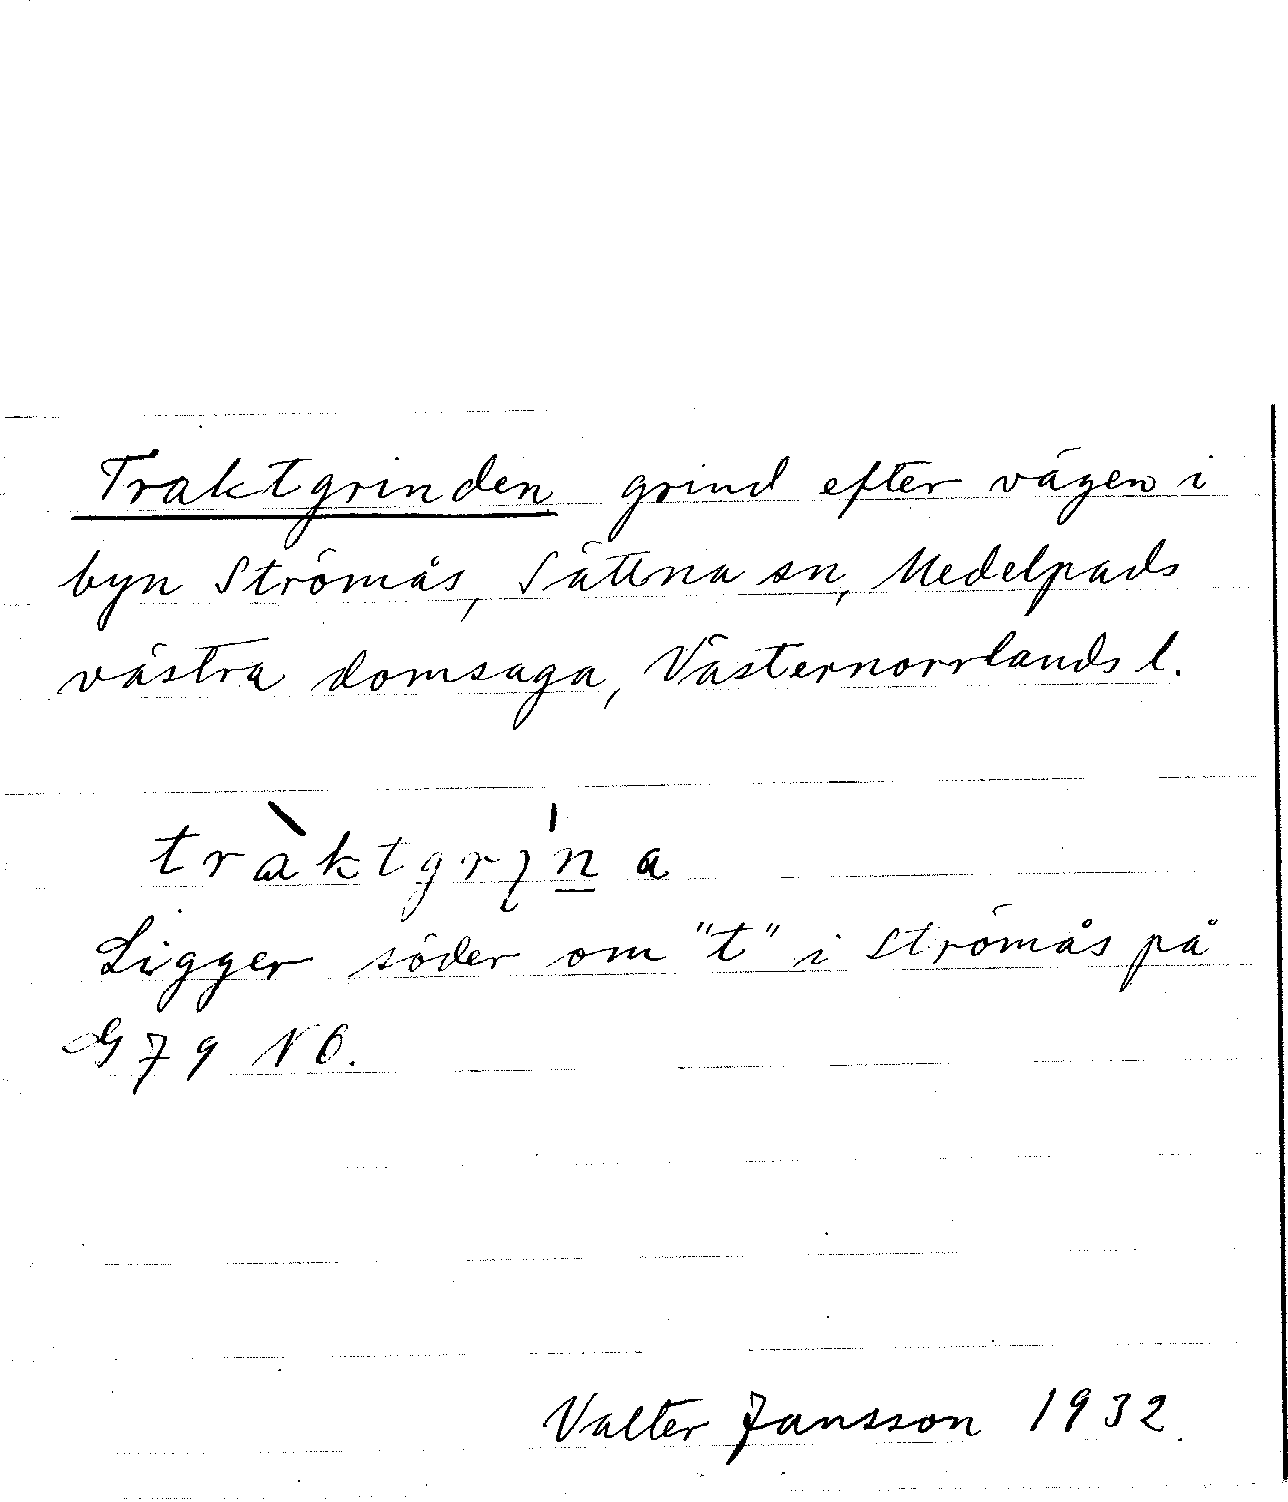 Traktgrinden grind efter vägen i
byn Strömås, Sättna sn, Medelpads
västra domsaga, Västernorrlands l.
tràktgrı̨́n̲a
Ligger söder om "t" i Strömås på
G 7 9 NO.
Valter Jansson 1932.